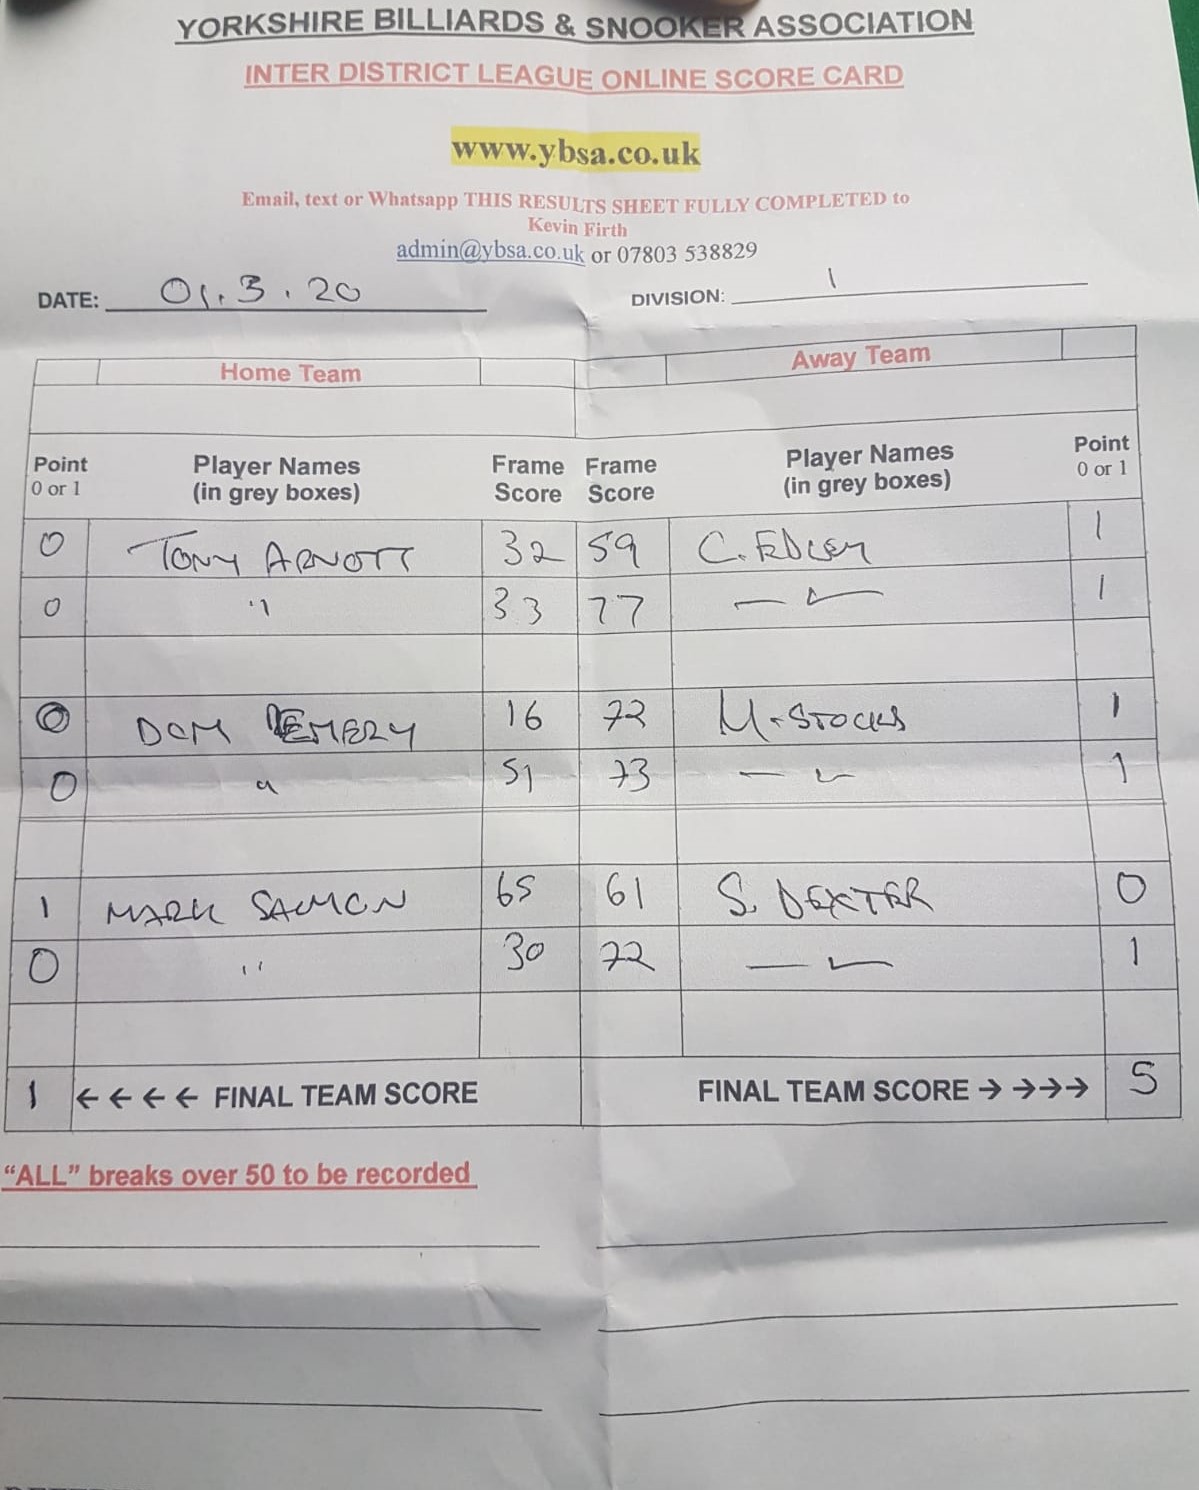 YORKSHIRE BILLIARDS & SNOOKER ASSOCIATION
INTER DISTRICT LEAGUE ONLINE SCORE CARD
www.ybsa.co.uk
Email, text or Whatsapp THIS RESULTS SHEET FULLY COMPLETED to
Kevin Firth
admin@ybsa.co.uk or 07803 538829
DATE: 01.3.20 DIVISION: 1
Home Team Away Team
Point Player Names Frame Frame Player Names Point
0 or 1 (in grey boxes) Score Score (in grey boxes) 0 or 1
0 TONY ARNOTT 32 59 C. EDLEY 1
0 " 33 77 — " 1
0 DOM EMERY 16 72 M. STOCKS 1
0 " 51 73 — " 1
1 MARK SALMON 65 61 S. DEXTER 0
0 " 30 72 — " 1
1 ← ← ← ← FINAL TEAM SCORE FINAL TEAM SCORE → →→→ 5
“ALL” breaks over 50 to be recorded